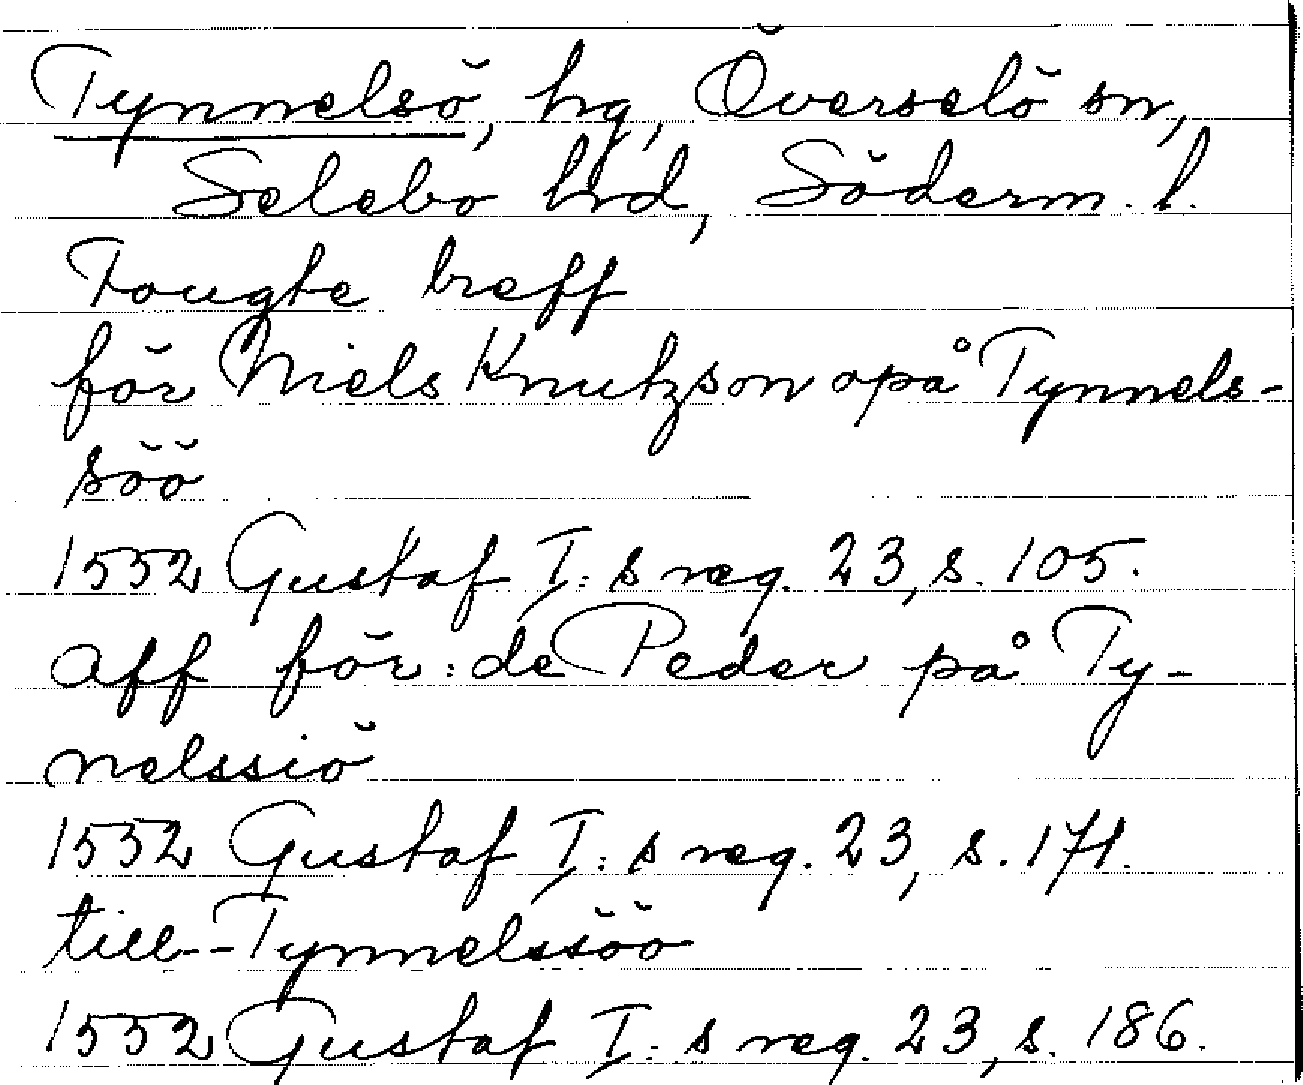 Tynnelsö, hg, Överselö sn,
Selebo hd, Söderm. l.
Fougte breff
för Niels Knutzson opå Tynnels-
söö
1552 Gustaf I:s reg. 23, s. 105.
aff för:de Peder på Ty-
nelssiö
1552 Gustaf I:s reg. 23, s. 171.
till--Tynnelssöö
1552 Gustaf I:s reg. 23, s. 186.